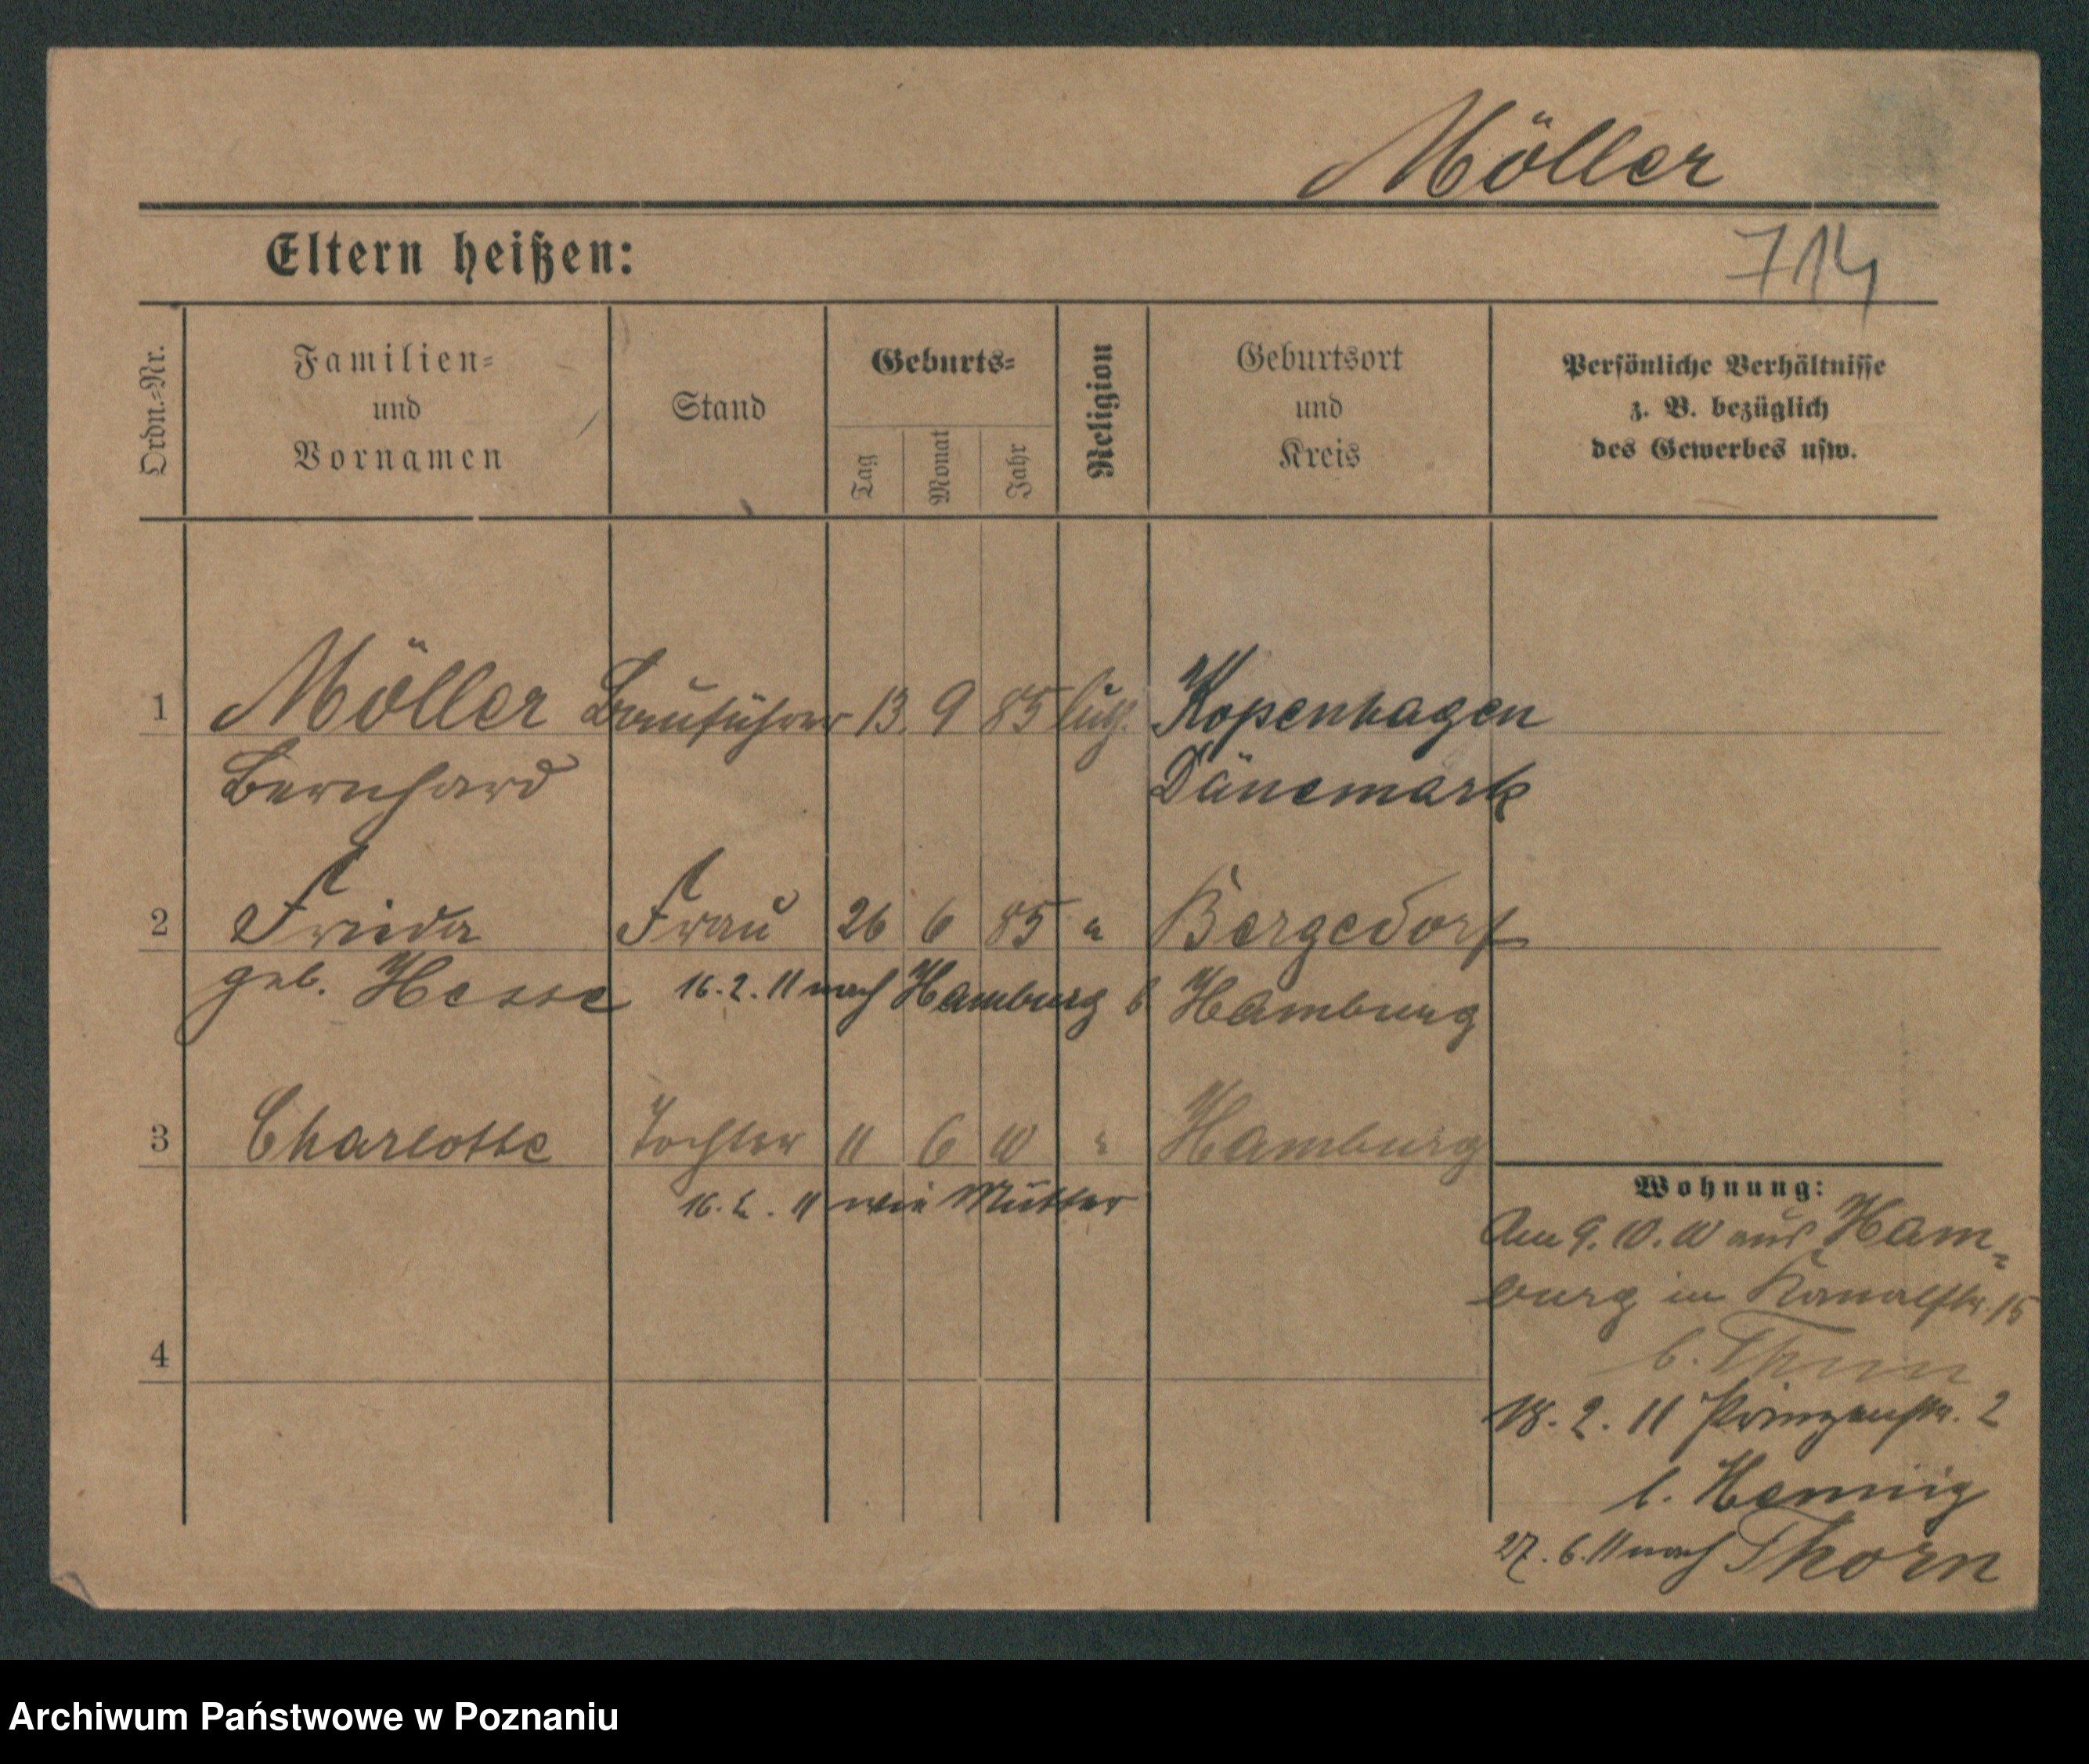 Möller
Eltern heißen:
714
Ordn.-Nr.
Familien-
und
Vornamen
Stand
Geburts-
Tag
Monat
Jahr
Religion
Geburtsort
und
Kreis
Persönliche Verhältnisse
z. B. bezüglich
des Gewerbes usw.
1 Möller Bauführer 13. 9 85 luth. Kopenhagen
Bernhard Dänemark
2 Frieda Frau 26 6 85 " Bergedorf
geb. Hesse 16.2.11 nach Hamburg b Hamburg
3 Charlotte Tochter 11 6 10 " Hamburg
16.2.11 wie Mutter
4
Wohnung:
Am 9.10.10 aus Ham-
burg in Kanalstr. 15
b.
18.2.11 Prinzenstr. 2
b. Hennig
27.6.11 nach Thorn
Archiwum Państwowe w Poznaniu